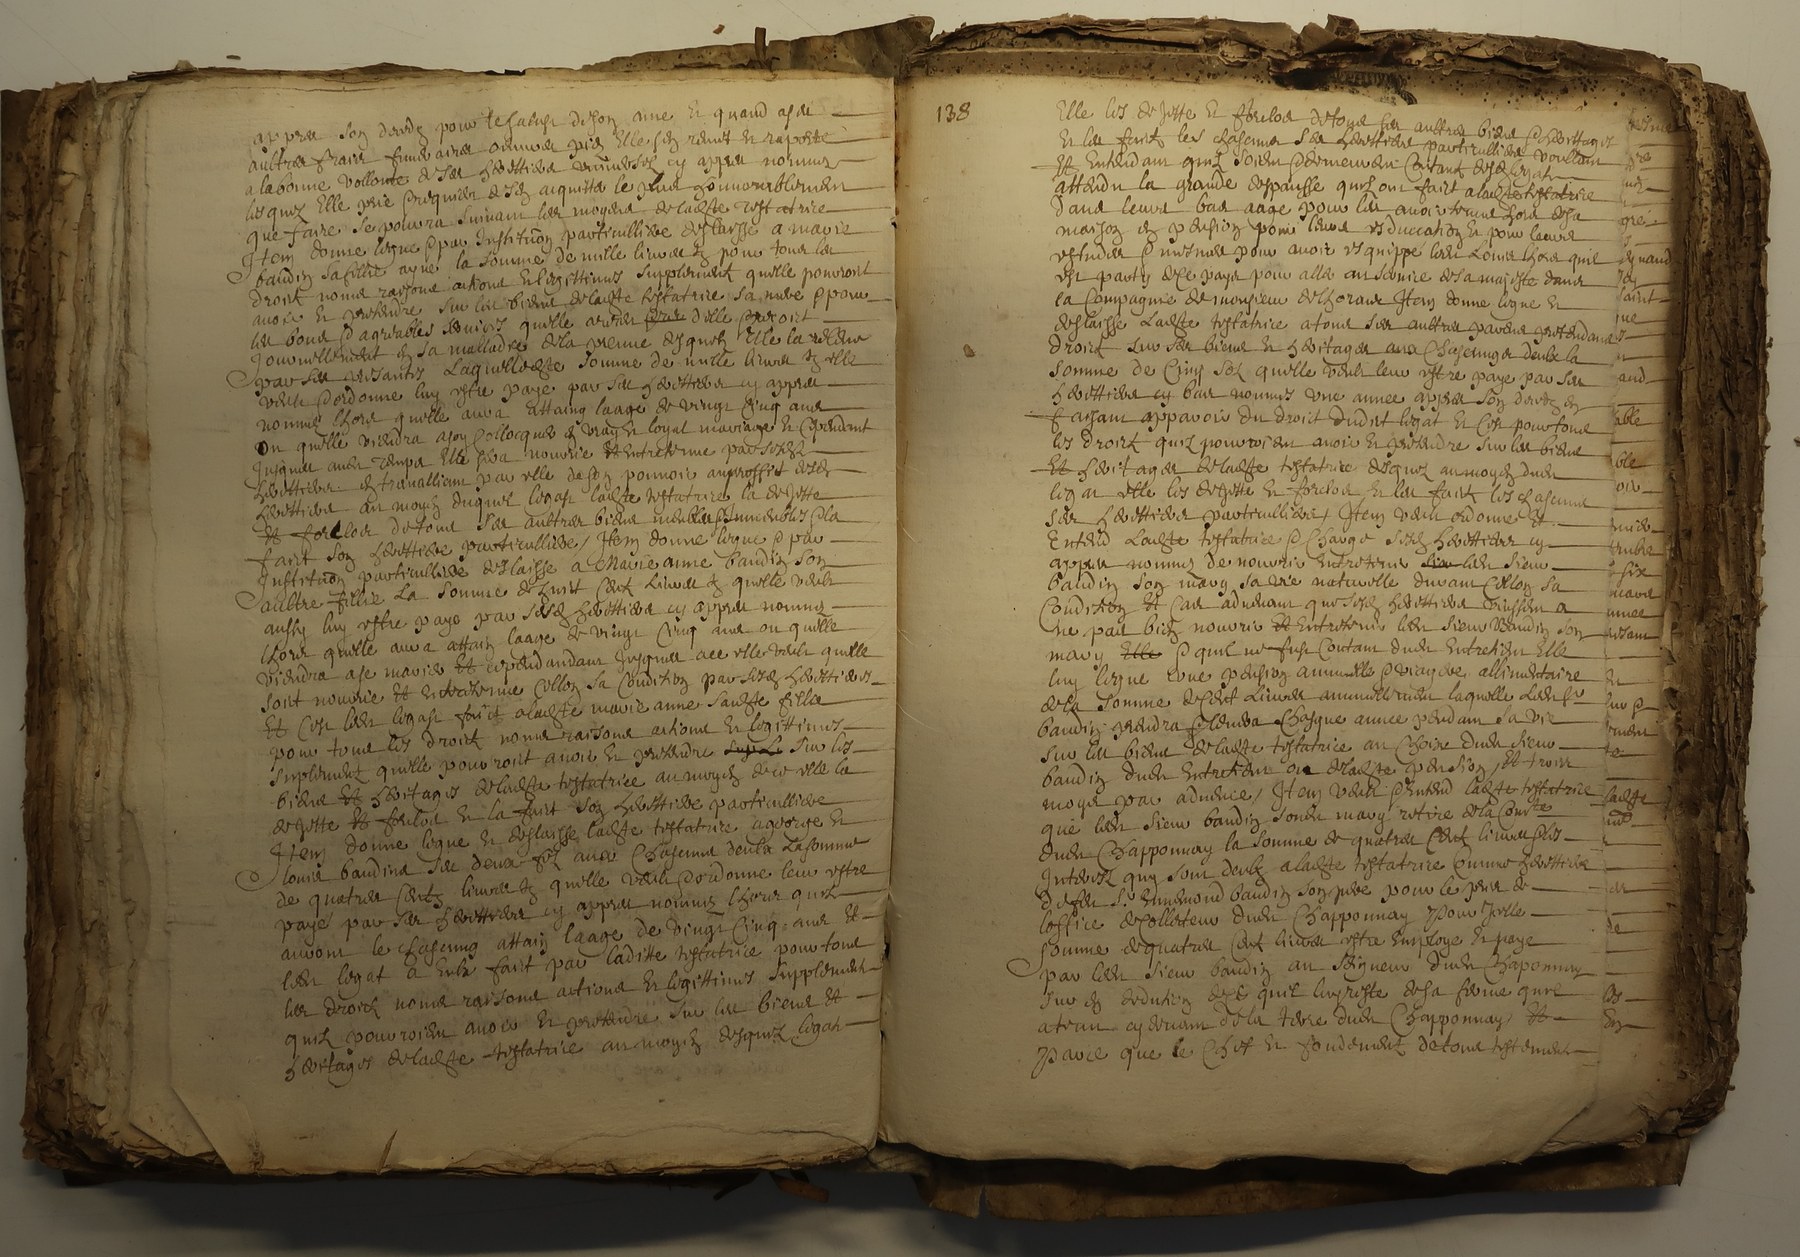 appres son deces pour le salut de son ame et quand as des
aultres frais funeraires ordonnes puis elle sen remet et raporte
a la bonne vollonte de ses herittiers universels cy appres nommes
lesquels elle prie et requiere de sen acquitter le plus honnorablement
que faire se pourra suivant les moyens de ladte testatrice
Item donne legue et par institution particulliere deslaisse a marie
baudin sa fillie aynee la somme de mille livres tz pour tous les
droits noms raisons actions et legittimes supplement quelle pourroit
avoir et pretendre sur les biens de ladte testatrice sa mere et pour
les bons et agreables services quelle a delle
journellement en sa malladie de la peine desquels elle la relleve
par ses presantes laquelle dte somme de mille livres tz elle
veult et ordonne luy estre paye par ses herittiers cy appres
nommes lhors quelle aura attaing laage de vingt cinq ans
ou quelle viendra a soy collocquer en vray et loyal mariage et cependant
jusques audt temps elle sera nourrie et entretenue par sesdts
herittiers en travalliant par elle de son pouvoir au proffit desds
herittiers au moyen duquel legat ladte testatrice la dejette
et forclos de tous ses aultres biens meubles et immeubles et la
faict son herittiere particulliere / Item donne legue et par
institution particulliere deslaisse a Marie anne baudin son
aultre fillie la somme de huict cent livres tz quelle veult
aussy luy estre paye par sesds herittiers cy appres nommes
lhors quelle aura attain laage de vingt cinq ans ou quelle
viendra a se marier et cependandant jusques a ce elle veult quelle
soit nourrie et entretenue cellon sa condition par sesds herittiers
et cest ledt legat faict a ladte marie anne sadte fille
pour tous les droits noms raisons actions et legittimes
suplement quelle pourroit avoir et pretendre sur les
biens et heritages de ladte testatrice au moyen de ce elle la
dejette et forclos et la faict son herittiere particulliere
Item donne legue et deslaisse ladte testatrice a george et
louis baudins ses deux fils a ung chascung deulx la somme
de quatres cents livres tz quelle veult et ordonne leur estre
paye par ses herittiers cy appres nommes lhors quils
auront le chascung attain laage de vingt cinq ans et
ledt legat a eulx faict par ladite testatrice pour tous
les droits noms raisons actions et legittimes supplement
quils pourroient avoir et pretendre sur les biens et
heritages de ladte testatrice au moyen desquels legats
138
Elle les dejette et forclos de tous ses aultres biens et heritages
et les faict les chascuns ses herittiers particulliers voullant
et entendant quils soient et demeurent contants desds legats
attendu la grande despansse quils ont faict a ladte testatrice
dans leurs bas aage pour les avoir tenus hors de sa
maison en pension pour leurs education et pour leurs
estudes et mesmes pour avoir esquippe ledt Louis lhors quil
est party de ce pays pour aller au service de sa majeste dans
la compagnie de monsieur de Item donne legue et
deslaisse ladte testatrice a tous ses aultres parens pretendans
droict sur ses biens et heritages a ung chascungs deulx la
somme de cinq sols quelle veult leur estre paye par ses
herittiers cy bas nommes une annee appres son deces en
faisant apparoir du droit dudit legat et cest pour tous
les droits quils pourroient avoir et pretendre sur les biens
et heritages de ladte testatrice desquels au moyen dudt
legat elle les dejette et forclos et les faict les chascuns
ses herittiers particulliers / Item veult ordonne et
entend ladte testatrice et charge sesds herittiers cy
appres nommes de nourrir entretenir ledt sieur
baudin son mary sa vie naturelle durant cellon sa
condition et cas advenant que sesds herittiers vinssent a
ne pas bien nourrir et entretenir ledt sieur baudin son
mary et quil ne fust contant dudt entretien elle
luy legue une pension annuelle et viagere allimentaire
de la somme de cent livres annuellement laquelle ledt sr
baudin prendra et levera chasque annee pendant sa vie
sur les biens de ladte testatrice au choix dudt sieur
baudin dudt entretien ou de ladte pension, et trois
moys par advance / Item veult et entend ladte testatrice
que ledt sieur baudin sondt mary retire de la
dudt Chapponnay la somme de quatres cent livres et les
interests quy sont deubs a ladte testatrice comme herittiere
de feu sr Ennemond baudin son pere pour le prix de
loffice de collecteur dudt Chapponnay pour icelle
somme de quatres cent livres estre employe et paye
par ledt sieur baudin au seigneur dudt Chaponnay
sur et deduction de ce quil luy reste de sa ferme quil
a tenu cy devant de la terre dudt Chapponnay, et
parce que le chef et fondement de tous testement